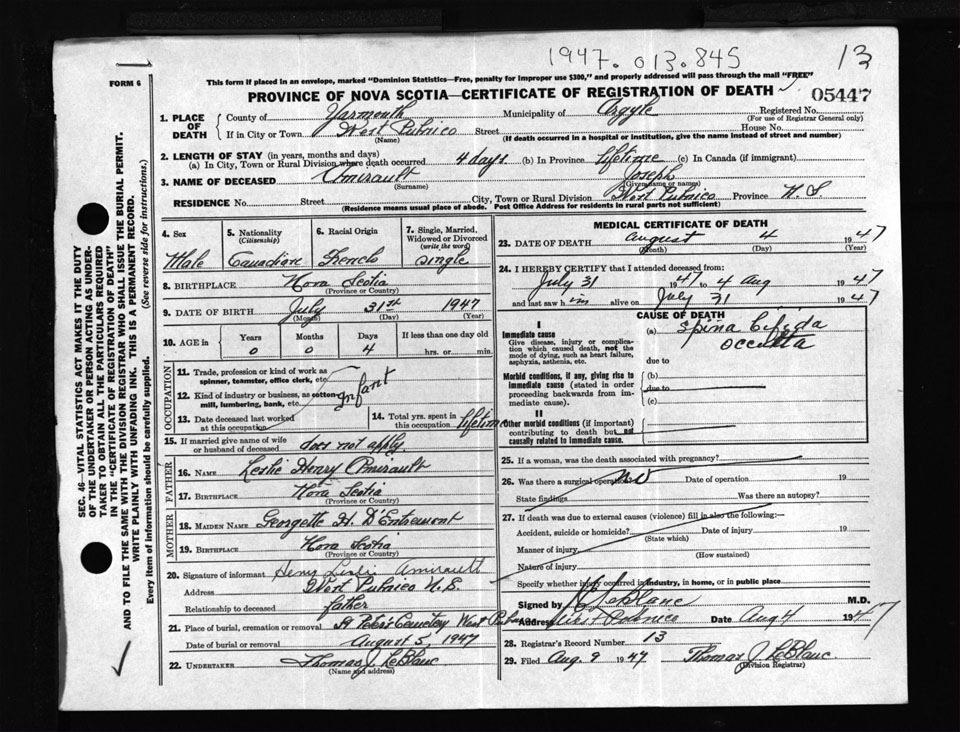 1947.013.845
13
FORM 6
This form if placed in an envelope, marked "Dominion Statistics—Free, penalty for improper use $300," and properly addressed will pass through the mail "FREE"
PROVINCE OF NOVA SCOTIA—CERTIFICATE OF REGISTRATION OF DEATH
05447
1. PLACE OF DEATH
County of Yarmouth Municipality of Argyle Registered No.
(For use of Registrar General only)
If in City or Town West Pubnico Street House No.
(Name) (If death occurred in a hospital or institution, give the name instead of street and number)
2. LENGTH OF STAY (in years, months and days)
(a) In City, Town or Rural Division where death occurred 4 days (b) In Province lifetime (c) In Canada (if immigrant)
3. NAME OF DECEASED Amirault Joseph
(Surname) (Given name or names)
RESIDENCE No. Street City, Town or Rural Division West Pubnico Province N.S.
(Residence means usual place of abode. Post Office Address for residents in rural parts not sufficient)
4. Sex
Male
5. Nationality (Citizenship)
Canadian
6. Racial Origin
French
7. Single, Married, Widowed or Divorced (write the word)
single
8. BIRTHPLACE Nova Scotia
(Province or Country)
9. DATE OF BIRTH July 31st 1947
(Month) (Day) (Year)
10. AGE in Years Months Days If less than one day old
0 0 4 hrs. or min.
OCCUPATION
11. Trade, profession or kind of work as spinner, teamster, office clerk, etc.
12. Kind of industry or business, as cotton mill, lumbering, bank, etc.
Infant
13. Date deceased last worked at this occupation
14. Total yrs. spent in this occupation lifetime
15. If married give name of wife or husband of deceased does not apply
FATHER
16. NAME Leslie Henry Amirault
17. BIRTHPLACE Nova Scotia
(Province or Country)
MOTHER
18. MAIDEN NAME Georgette H. D'Entremont
19. BIRTHPLACE Nova Scotia
(Province or Country)
20. Signature of informant Henry Leslie Amirault
Address West Pubnico N.S.
Relationship to deceased father
21. Place of burial, cremation or removal St Peter's Cemetery West Pubnico
Date of burial or removal August 5, 1947
22. UNDERTAKER Thomas J. LeBlanc
(Name and address)
MEDICAL CERTIFICATE OF DEATH
23. DATE OF DEATH August 4 1947
(Month) (Day)
24. I HEREBY CERTIFY that I attended deceased from:
July 31 1947 to 4 Aug 1947
and last saw him alive on July 31 1947
CAUSE OF DEATH
I
Immediate cause
Give disease, injury or complication which caused death, not the mode of dying, such as heart failure, asphyxia, asthenia, etc.
(a) Spina bifida
occulta
due to
Morbid conditions, if any, giving rise to immediate cause (stated in order proceeding backwards from immediate cause).
(b)
due to
(c)
II
Other morbid conditions (if important) contributing to death but not causally related to immediate cause.
25. If a woman, was the death associated with pregnancy?
26. Was there a surgical operation? no Date of operation 19
State findings Was there an autopsy?
27. If death was due to external causes (violence) fill in also the following:—
Accident, suicide or homicide? Date of injury 19
(State which)
Manner of injury
(How sustained)
Nature of injury
Specify whether injury occurred in industry, in home, or in public place
Signed by LeBlanc M.D.
Address West Pubnico Date Aug 4 1947
28. Registrar's Record Number 13
29. Filed Aug. 9 1947 Thomas J. LeBlanc
(Division Registrar)
SEC. 46- VITAL STATISTICS ACT MAKES IT THE DUTY
OF THE UNDERTAKER OR PERSON ACTING AS UNDER-
TAKER TO OBTAIN ALL THE PARTICULARS REQUIRED
IN THE "CERTIFICATE OF REGISTRATION OF DEATH"
AND TO FILE THE SAME WITH THE DIVISION REGISTRAR WHO SHALL ISSUE THE BURIAL PERMIT.
WRITE PLAINLY WITH UNFADING INK. THIS IS A PERMANENT RECORD.
Every item of information should be carefully supplied. (See reverse side for instructions.)